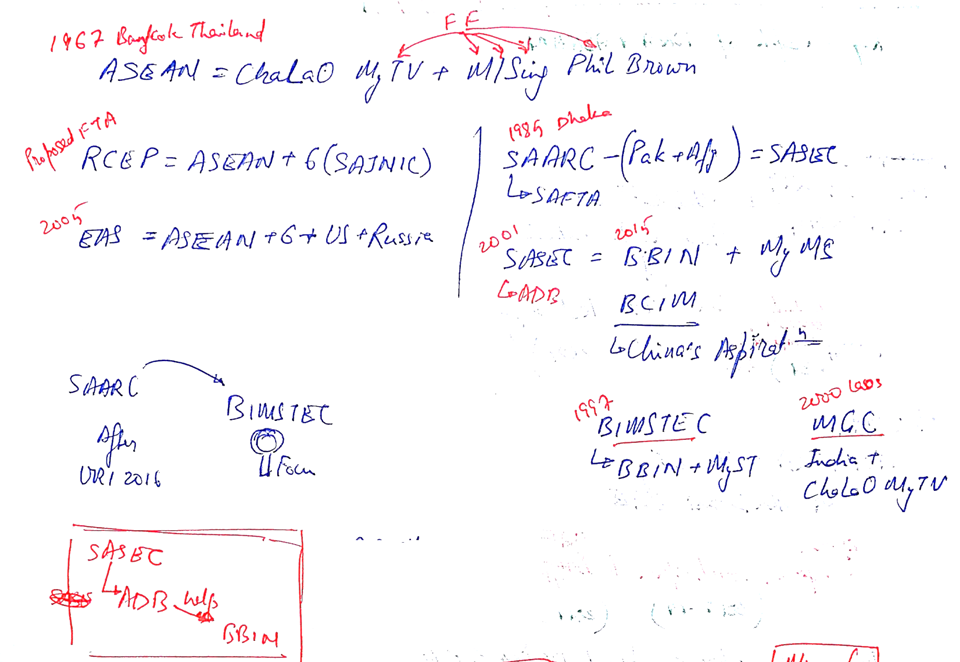 FF
1967 Bangkok Thailand
ASEAN = ChaLaO MyTV + MISing Phil Brown
Proposed FTA
RCEP = ASEAN + 6 (SAJNIC)
2005
EAS = ASEAN + 6 + US + Russia
1985 Dhaka
SAARC - (Pak + Afg) = SASEC
↳ SAFTA
2001 2015
SASEC = BBIN + My MS
↳ ADB
BCIM
↳ China's
SAARC
BIMSTEC
After
URI 2016
Focus
1997
BIMSTEC
↳ BBIN + MyST
2000 Laos
MGC
India +
ChaLaO MyTV
SASEC
↳ ADB help
BBIN